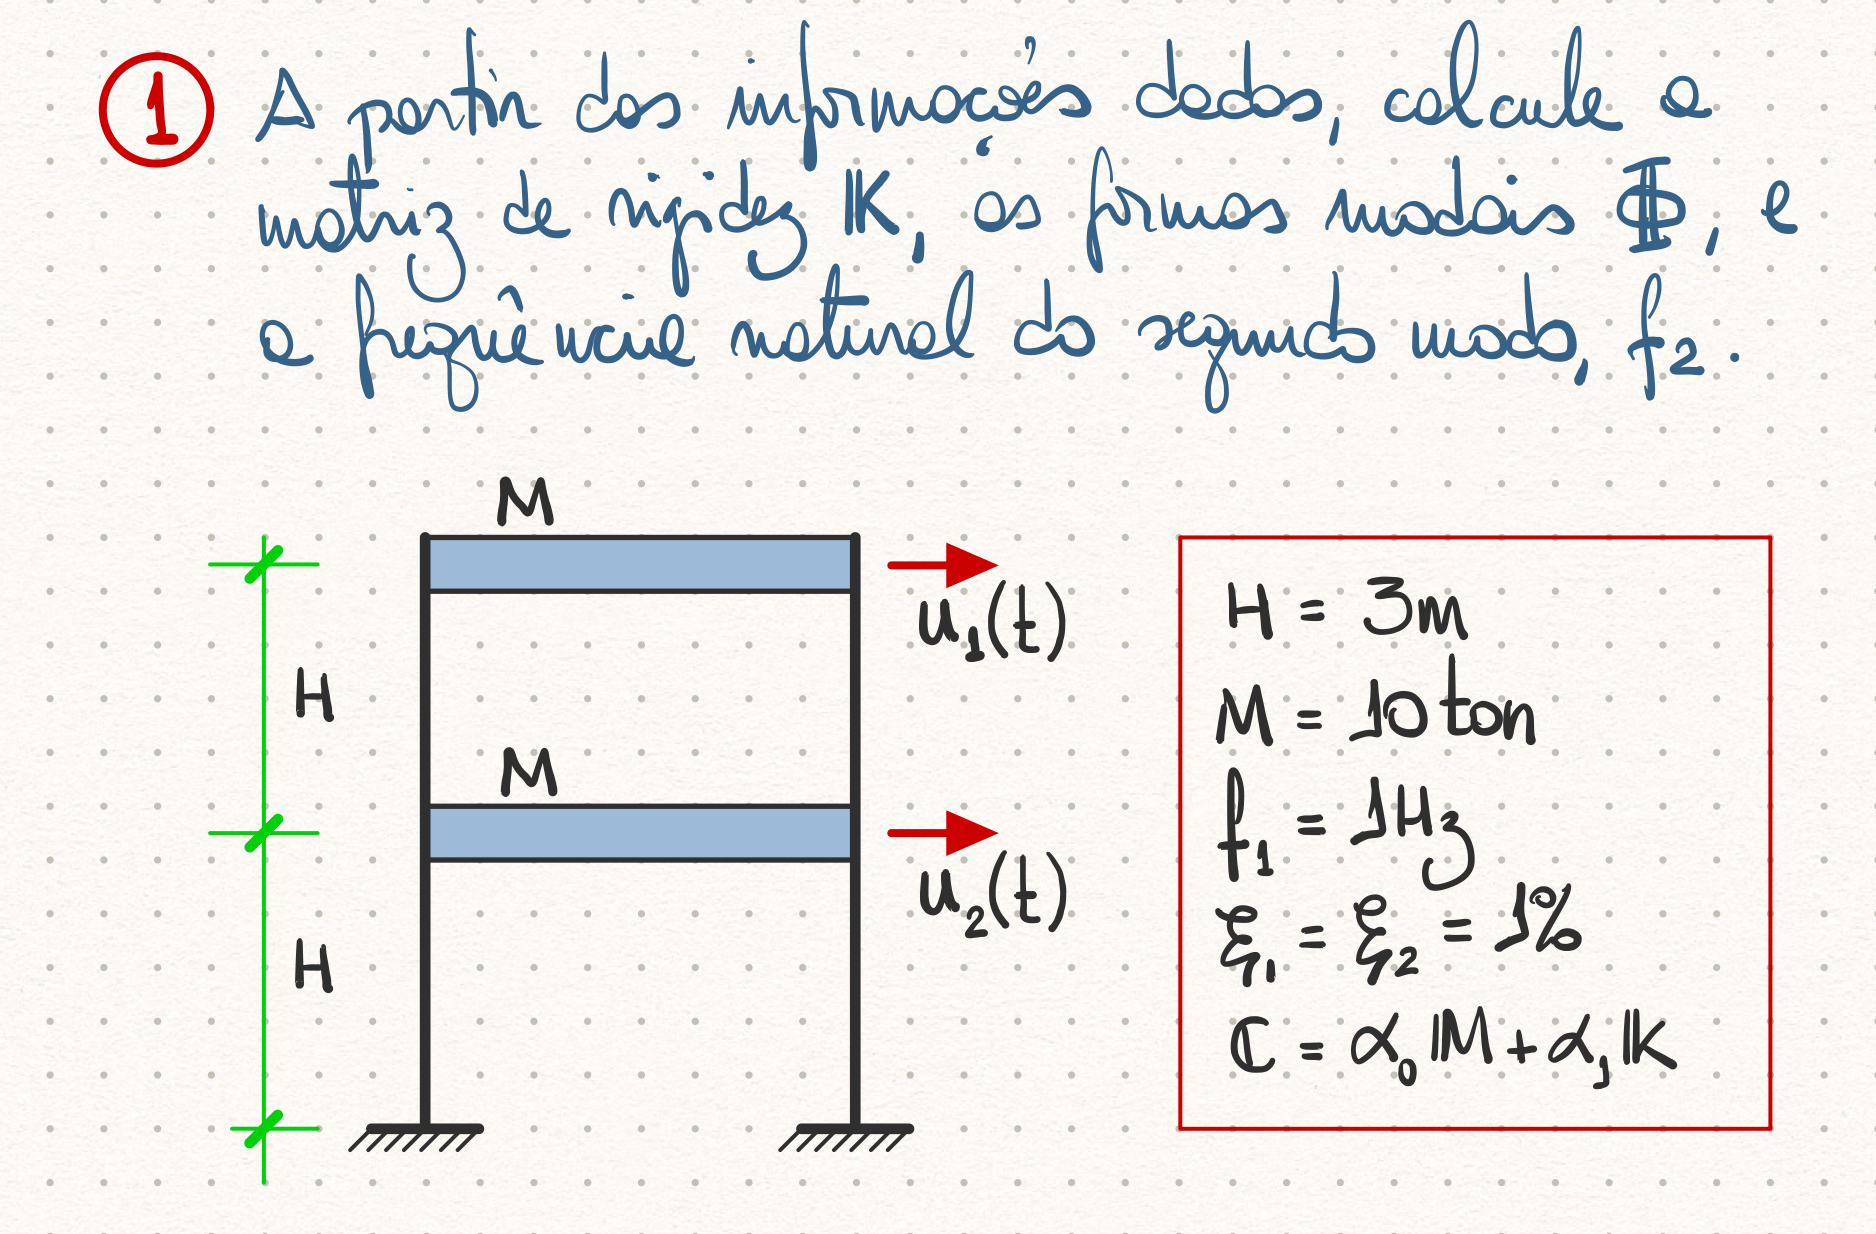 1 A partir das informações dadas, calcule a
matriz de rigidez K, as formas modais Φ, e
a frequência natural do segundo modo, f₂.
M
u₁(t)
H
M
u₂(t)
H
H = 3m
M = 10 ton
f₁ = 1Hz
ξ₁ = ξ₂ = 1%
C = α₀M + α₁K